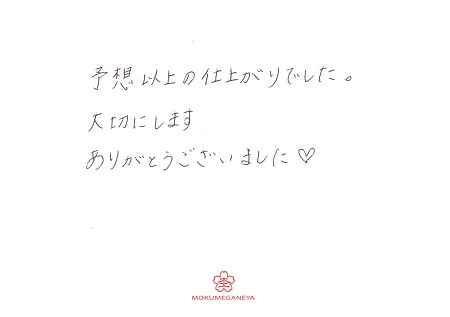 予想以上の仕上がりでした。
大切にします
ありがとうございました♡
MOKUMEGANEYA